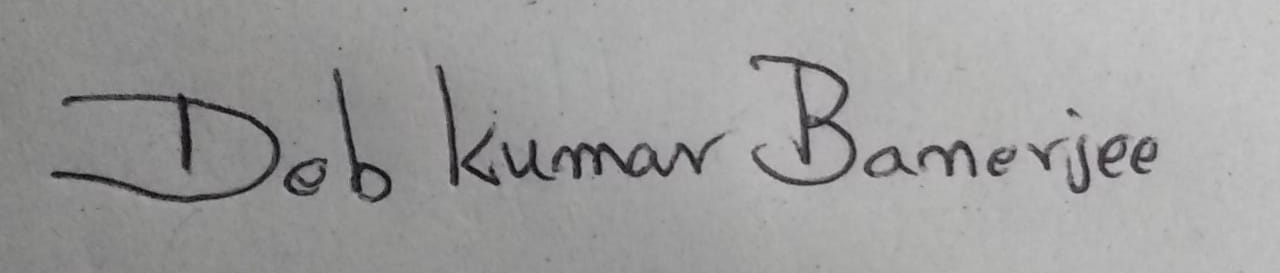 Deb kumar Banerjee